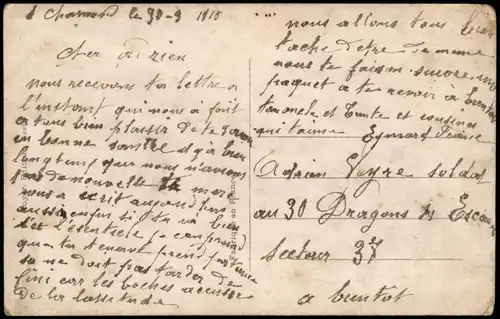 St Chamond le 30-9 1918
Cher Adrien
nous recevons ta lettre a
l'instant qui nous a fait
a tous bien plaisir de te savoir
en bonne santé il y a bien
longtemps que nous n'avions
pas de nouvelle
nous a ecrit aujourd
aussi enfin si tu va bien
c'est l'essentiele je comprend
que tu trouve
sa ne doit pas tarder de
fini car les boches accuse
de la lassitude
nous allons tous bien
tache d'être de meme
nous te faison
paquet a te revoir a bientot
ton oncle et Tante et cousines
qui t'aime Eymard France
Adrien Veyre soldat
au 30 Dragons
secteur 37
a bientot